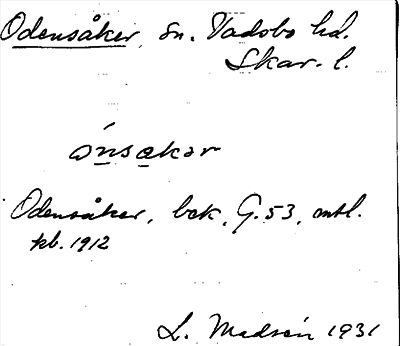 Odensåker, sn. Vadsbo hd.
Skar. l.
ónsakər
Odensåker, bek. G. 53, antl.
kb. 1912
L. Madsén 1931